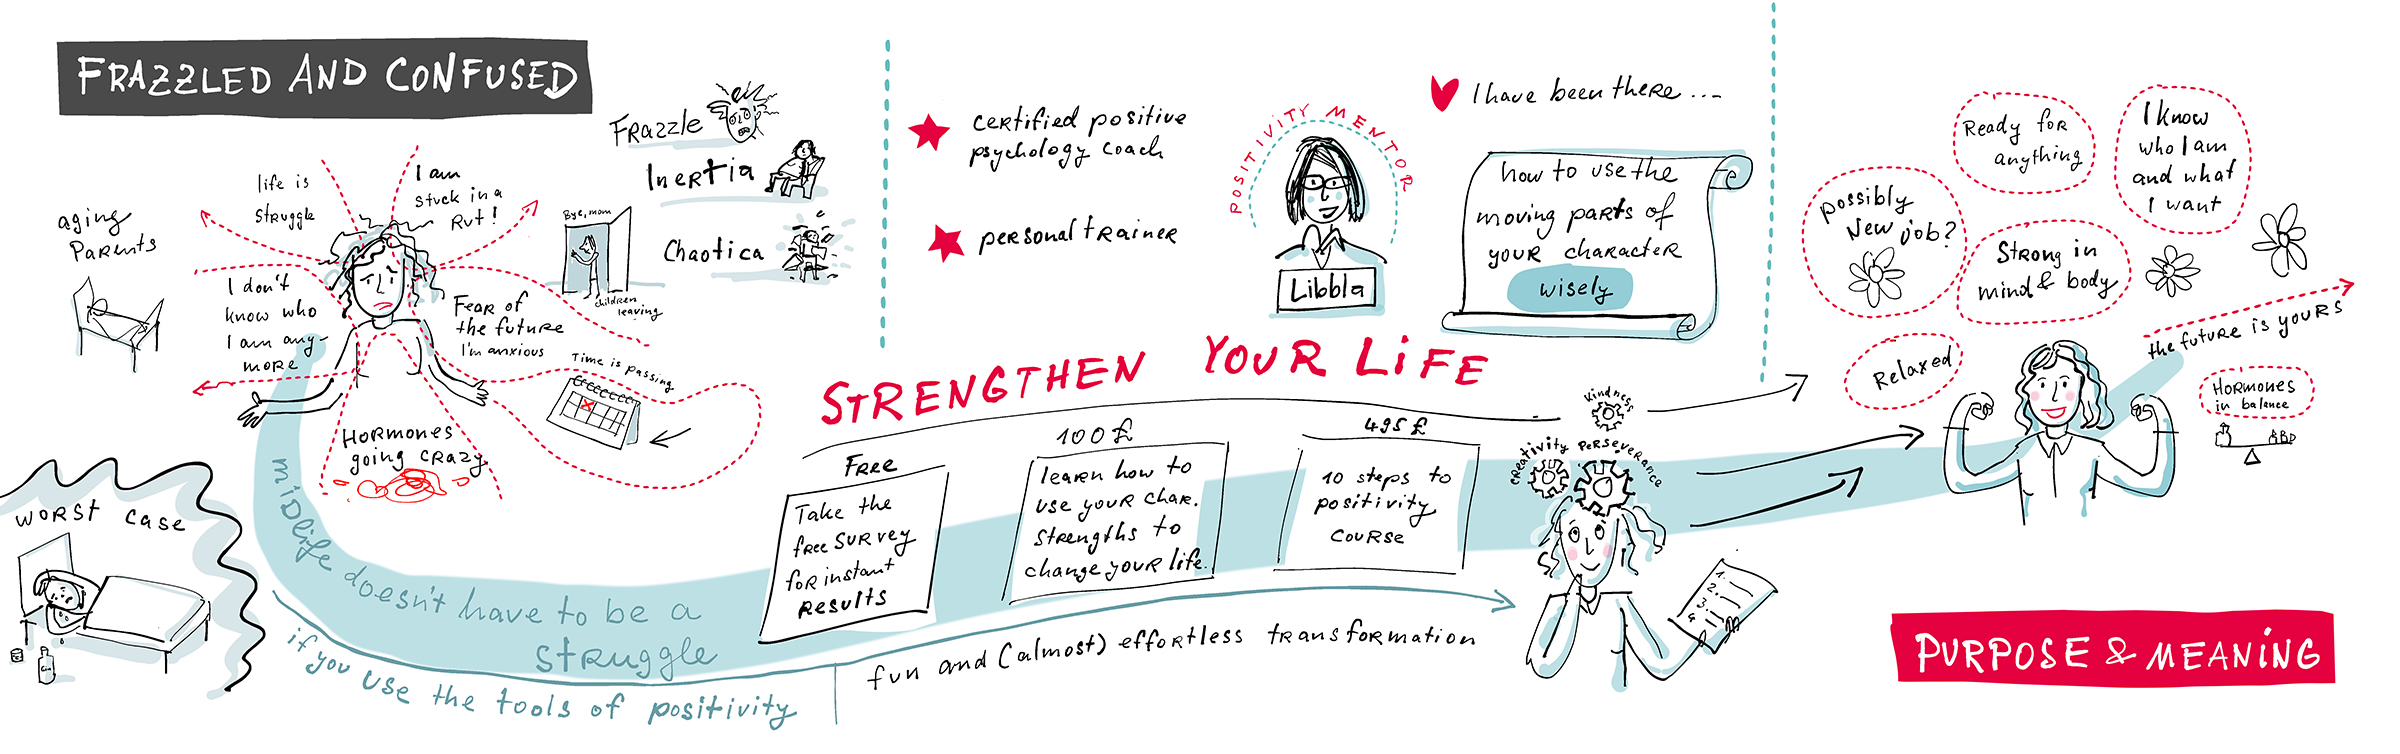 FRAZZLED AND CONFUSED
aging
parents
life is
struggle
I am
stuck in a
Rut!
I don't
know who
I am any-
more
Fear of
the future
I'm anxious
Hormones
going crazy
Frazzle
Inertia
Chaotica
Bye, mom
children
leaving
Time is passing
worst case
Gin
midlife doesn't have to be a
struggle
if you use the tools of positivity
fun and (almost) effortless transformation
certified positive
psychology coach
personal trainer
POSITIVITY MENTOR
Libbla
I have been there ...
how to use the
moving parts of
your character
wisely
STRENGTHEN YOUR LIFE
Free
Take the
free survey
for instant
results
100 £
learn how to
use your char.
strengths to
change your life.
495 £
10 steps to
positivity
course
kindness
creativity
perseverance
1.
2.
3.
4
possibly
New job?
Ready for
anything
I know
who I am
and what
I want
Strong in
mind & body
Relaxed
the future is yours
Hormones
in balance
PURPOSE & MEANING